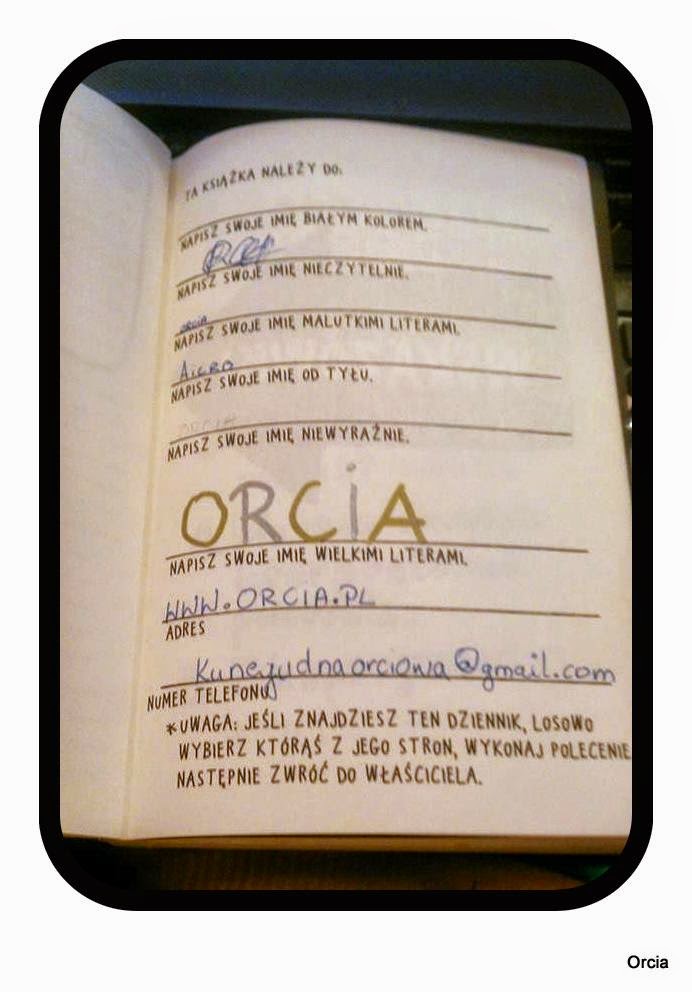 TA KSIĄŻKA NALEŻY DO:
NAPISZ SWOJE IMIĘ BIAŁYM KOLOREM.
NAPISZ SWOJE IMIĘ NIECZYTELNIE.
orcia
NAPISZ SWOJE IMIĘ MALUTKIMI LITERAMI.
AICRO
NAPISZ SWOJE IMIĘ OD TYŁU.
ORCIA
NAPISZ SWOJE IMIĘ NIEWYRAŹNIE.
ORCiA
NAPISZ SWOJE IMIĘ WIELKIMI LITERAMI.
WWW.ORCIA.PL
ADRES
@gmail.com
NUMER TELEFONU
*UWAGA: JEŚLI ZNAJDZIESZ TEN DZIENNIK, LOSOWO
WYBIERZ KTÓRĄŚ Z JEGO STRON, WYKONAJ POLECENIE
NASTĘPNIE ZWRÓĆ DO WŁAŚCICIELA.
Orcia